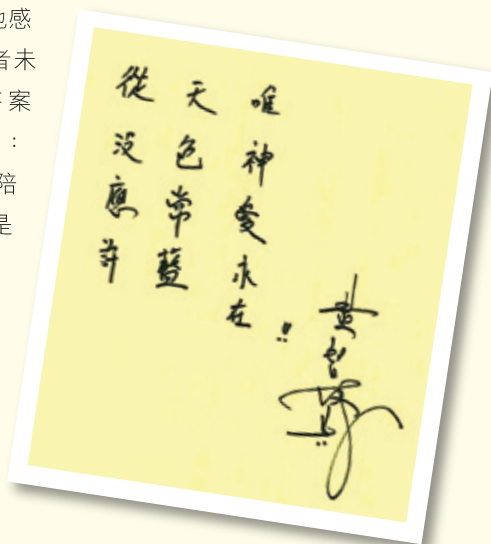 感
者未
案
：
陪
是
從沒應許
天色常藍
唯神愛永在!!
黃